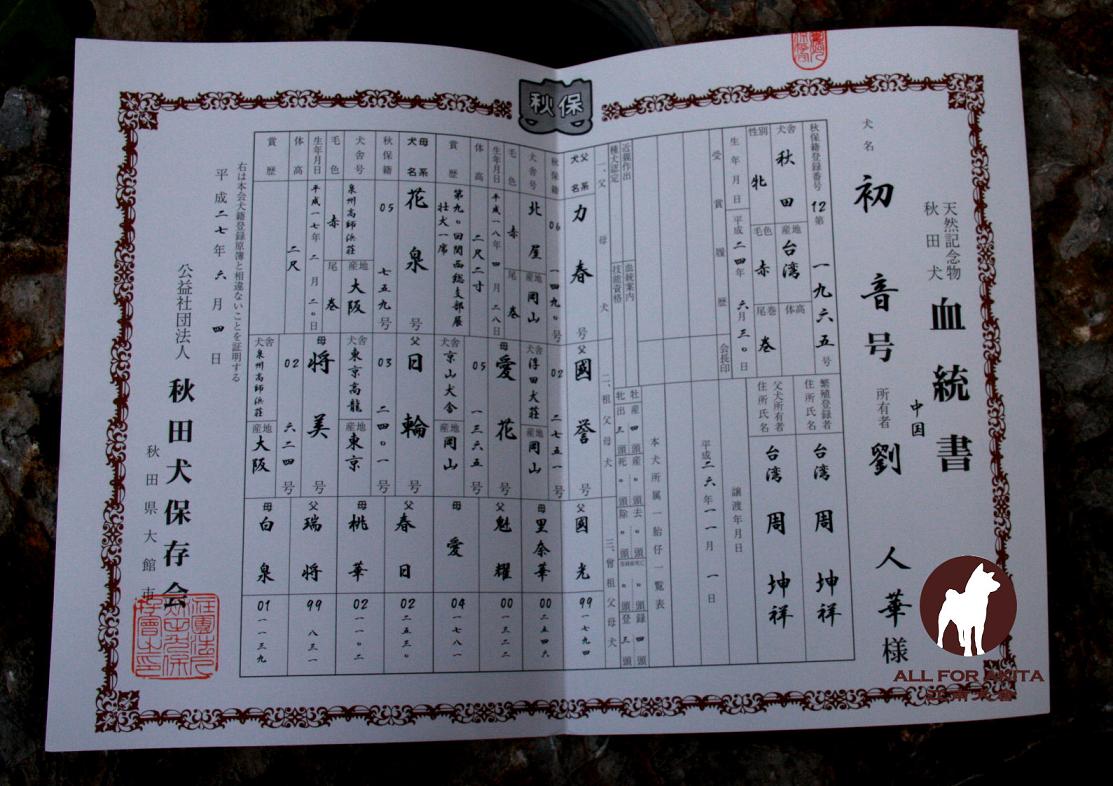 秋保
天然記念物
秋田犬
血統書
犬名
初音号
所有者
中国
劉人華様
秋保籍登録番号
12第一九六五号
犬舎
秋田
産地
台湾
体高
性別
牝
毛色
赤
尾巻
巻
生年月日
平成二四年六月三〇日
受賞履歴
会長印
繁殖登録者
住所氏名
台湾
周坤祥
父犬所有者
住所氏名
台湾
周坤祥
譲渡年月日
平成二六年一一月一日
本犬所属一胎仔一覧表
一、父母犬
二、祖父母犬
三、曾祖父母犬
父系
犬名
力春号
秋保籍
06
一四九〇号
犬舎号
北屋
産地
岡山
毛色
赤
尾
巻
生年月日
平成一八年四月二八日
体高
二尺二寸
賞歴
第九〇回関西総支部展
壮犬一席
母系
犬名
花泉号
秋保籍
05
七五九号
犬舎号
泉州高師浜荘
産地
大阪
毛色
赤
尾
巻
生年月日
平成一七年二月二〇日
体高
二尺
賞歴
父
國誉号
02
二七五一号
犬舎
淳田犬荘
産地
岡山
母
愛花号
05
一三六五号
犬舎
京山犬舎
産地
岡山
父
日輪号
03
二四〇一号
犬舎
東京高龍
産地
東京
母
将美号
02
六二四号
犬舎
泉州高師浜荘
産地
大阪
父
國光
99
一七九四
母
里奈華
00
二五四六
父
魁耀
00
一三二二
母
愛
04
一七八一
父
春日
02
二五三〇
母
桃華
02
一一〇二
父
瑞将
99
八三一
母
白泉
01
一一三九
右は本会犬籍登録原簿と相違ないことを証明する
平成二七年六月四日
公益社団法人
秋田犬保存会
秋田県大館市
ALL FOR AKITA